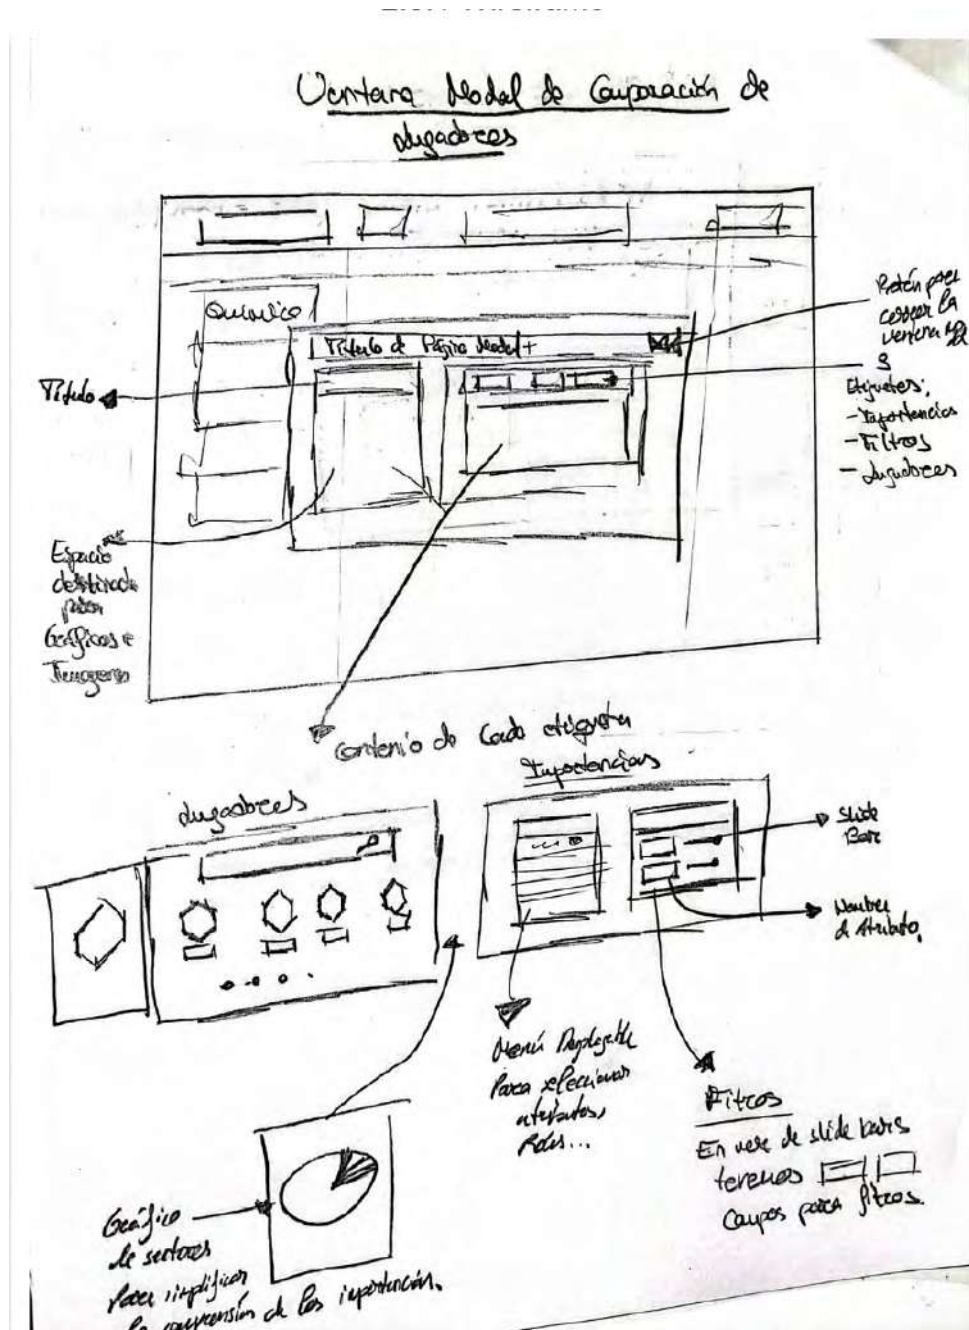 Ventana Modal de Comparación de
Jugadores
Título de Página Modal
Botón para
cerrar la
ventana
Título
3
Etiquetas;
- Importancias
- Filtros
- Jugadores
Espacio
destinado
para
Gráficos e
Imagenes
Contenio de Cada etiqueta
Jugadores
Importancias
Slide
Bar
Nombre
de Atributo.
Menú Desplegable
Para seleccionar
atributos,
Roles...
Filtros
En vez de slide bars
tenemos
Campos para filtros.
Gráfico
de sectores
Para simplificar
la comprensión de las importancias.